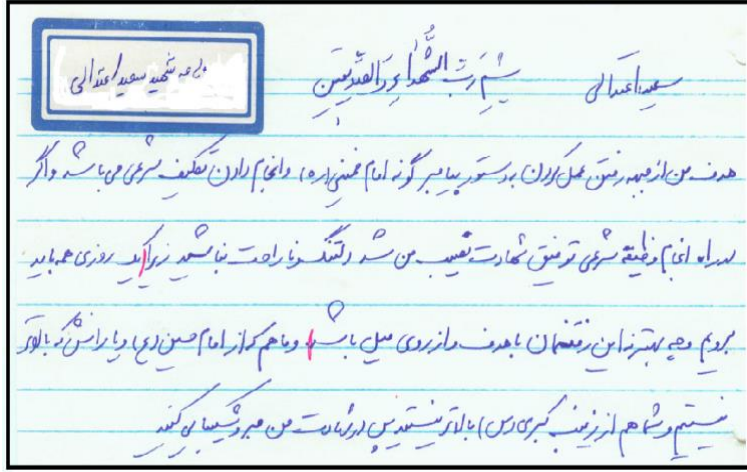 سعید اعتدالی
بسم رب الشهداء و الصدیقین
شهید سعید اعتدالی
هدف من از جبهه رفتن عمل کردن به دستور پیامبر گونه امام خمینی (ره) و انجام دادن تکلیف شرعی می باشد و اگر
در راه انجام وظیفه شرعی توفیق شهادت نصیب من شد دلتنگ و ناراحت نباشید زیرا یک روزی همه باید
برویم و چه بهتر از این رفتنمان با هدف و از روی میل باشد و ما هم که از امام حسین (ع) و یارانش که بالاتر
نیستیم و شما هم از زینب کبری (س) بالاتر نیستید پس در شهادت من صبر و شکیبایی کنید